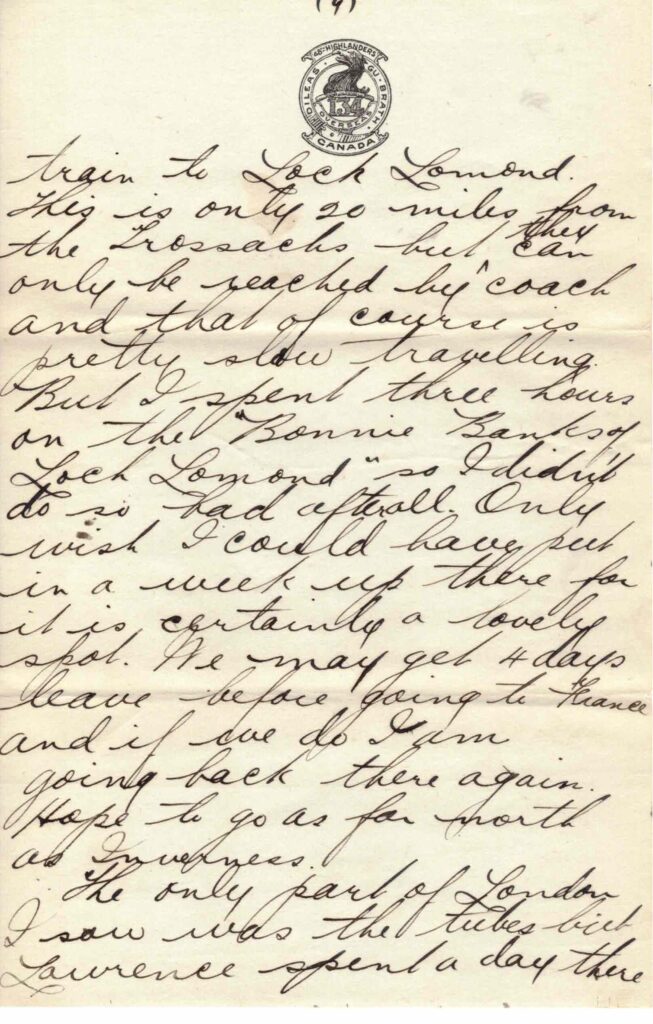 (4)
48TH HIGHLANDERS
DILEAS GU BRATH
134
OVERSEAS
CANADA
train to Lock Lomond.
This is only 20 miles from
the Trossachs but they can
only be reached by coach
and that of course is
pretty slow travelling.
But I spent three hours
on the "Bonnie Banks of
Loch Lomond" so I didn't
do so bad afterall. Only
wish I could have put
in a week up there for
it is certainly a lovely
spot. We may get 4 days
leave before going to France
and if we do I am
going back there again.
Hope to go as far north
as Inverness.
The only part of London
I saw was the tubes but
Lawrence spent a day there